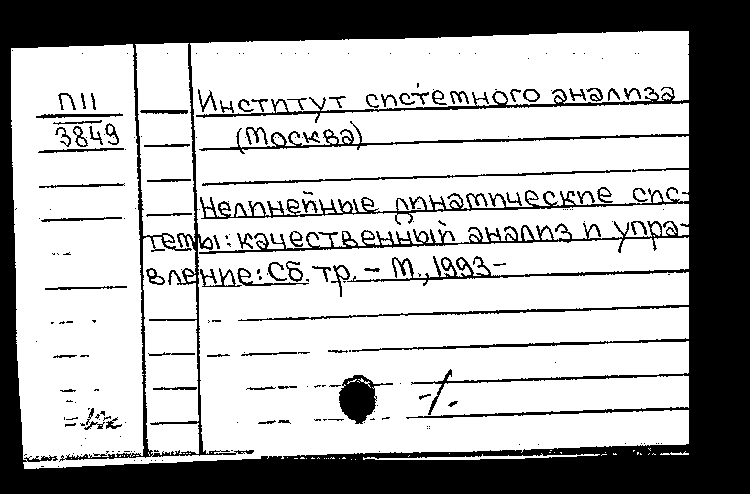 П11
3849
Институт системного анализа
(Москва)
Нелинейные динамические сис-
темы: качественный анализ и упра-
вление: Сб. тр. – М., 1993–
-/.